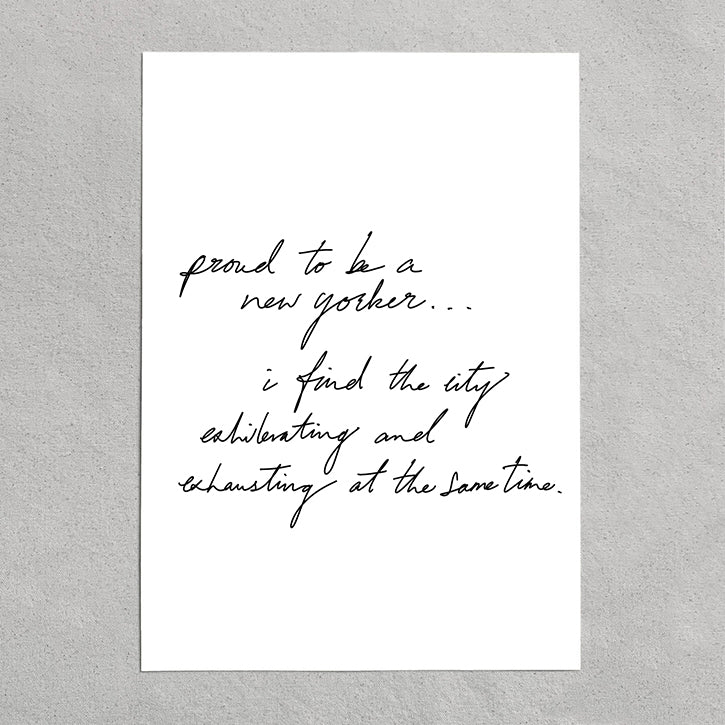 proud to be a
new yorker...
i find the city
exhilerating and
exhausting at the same time.